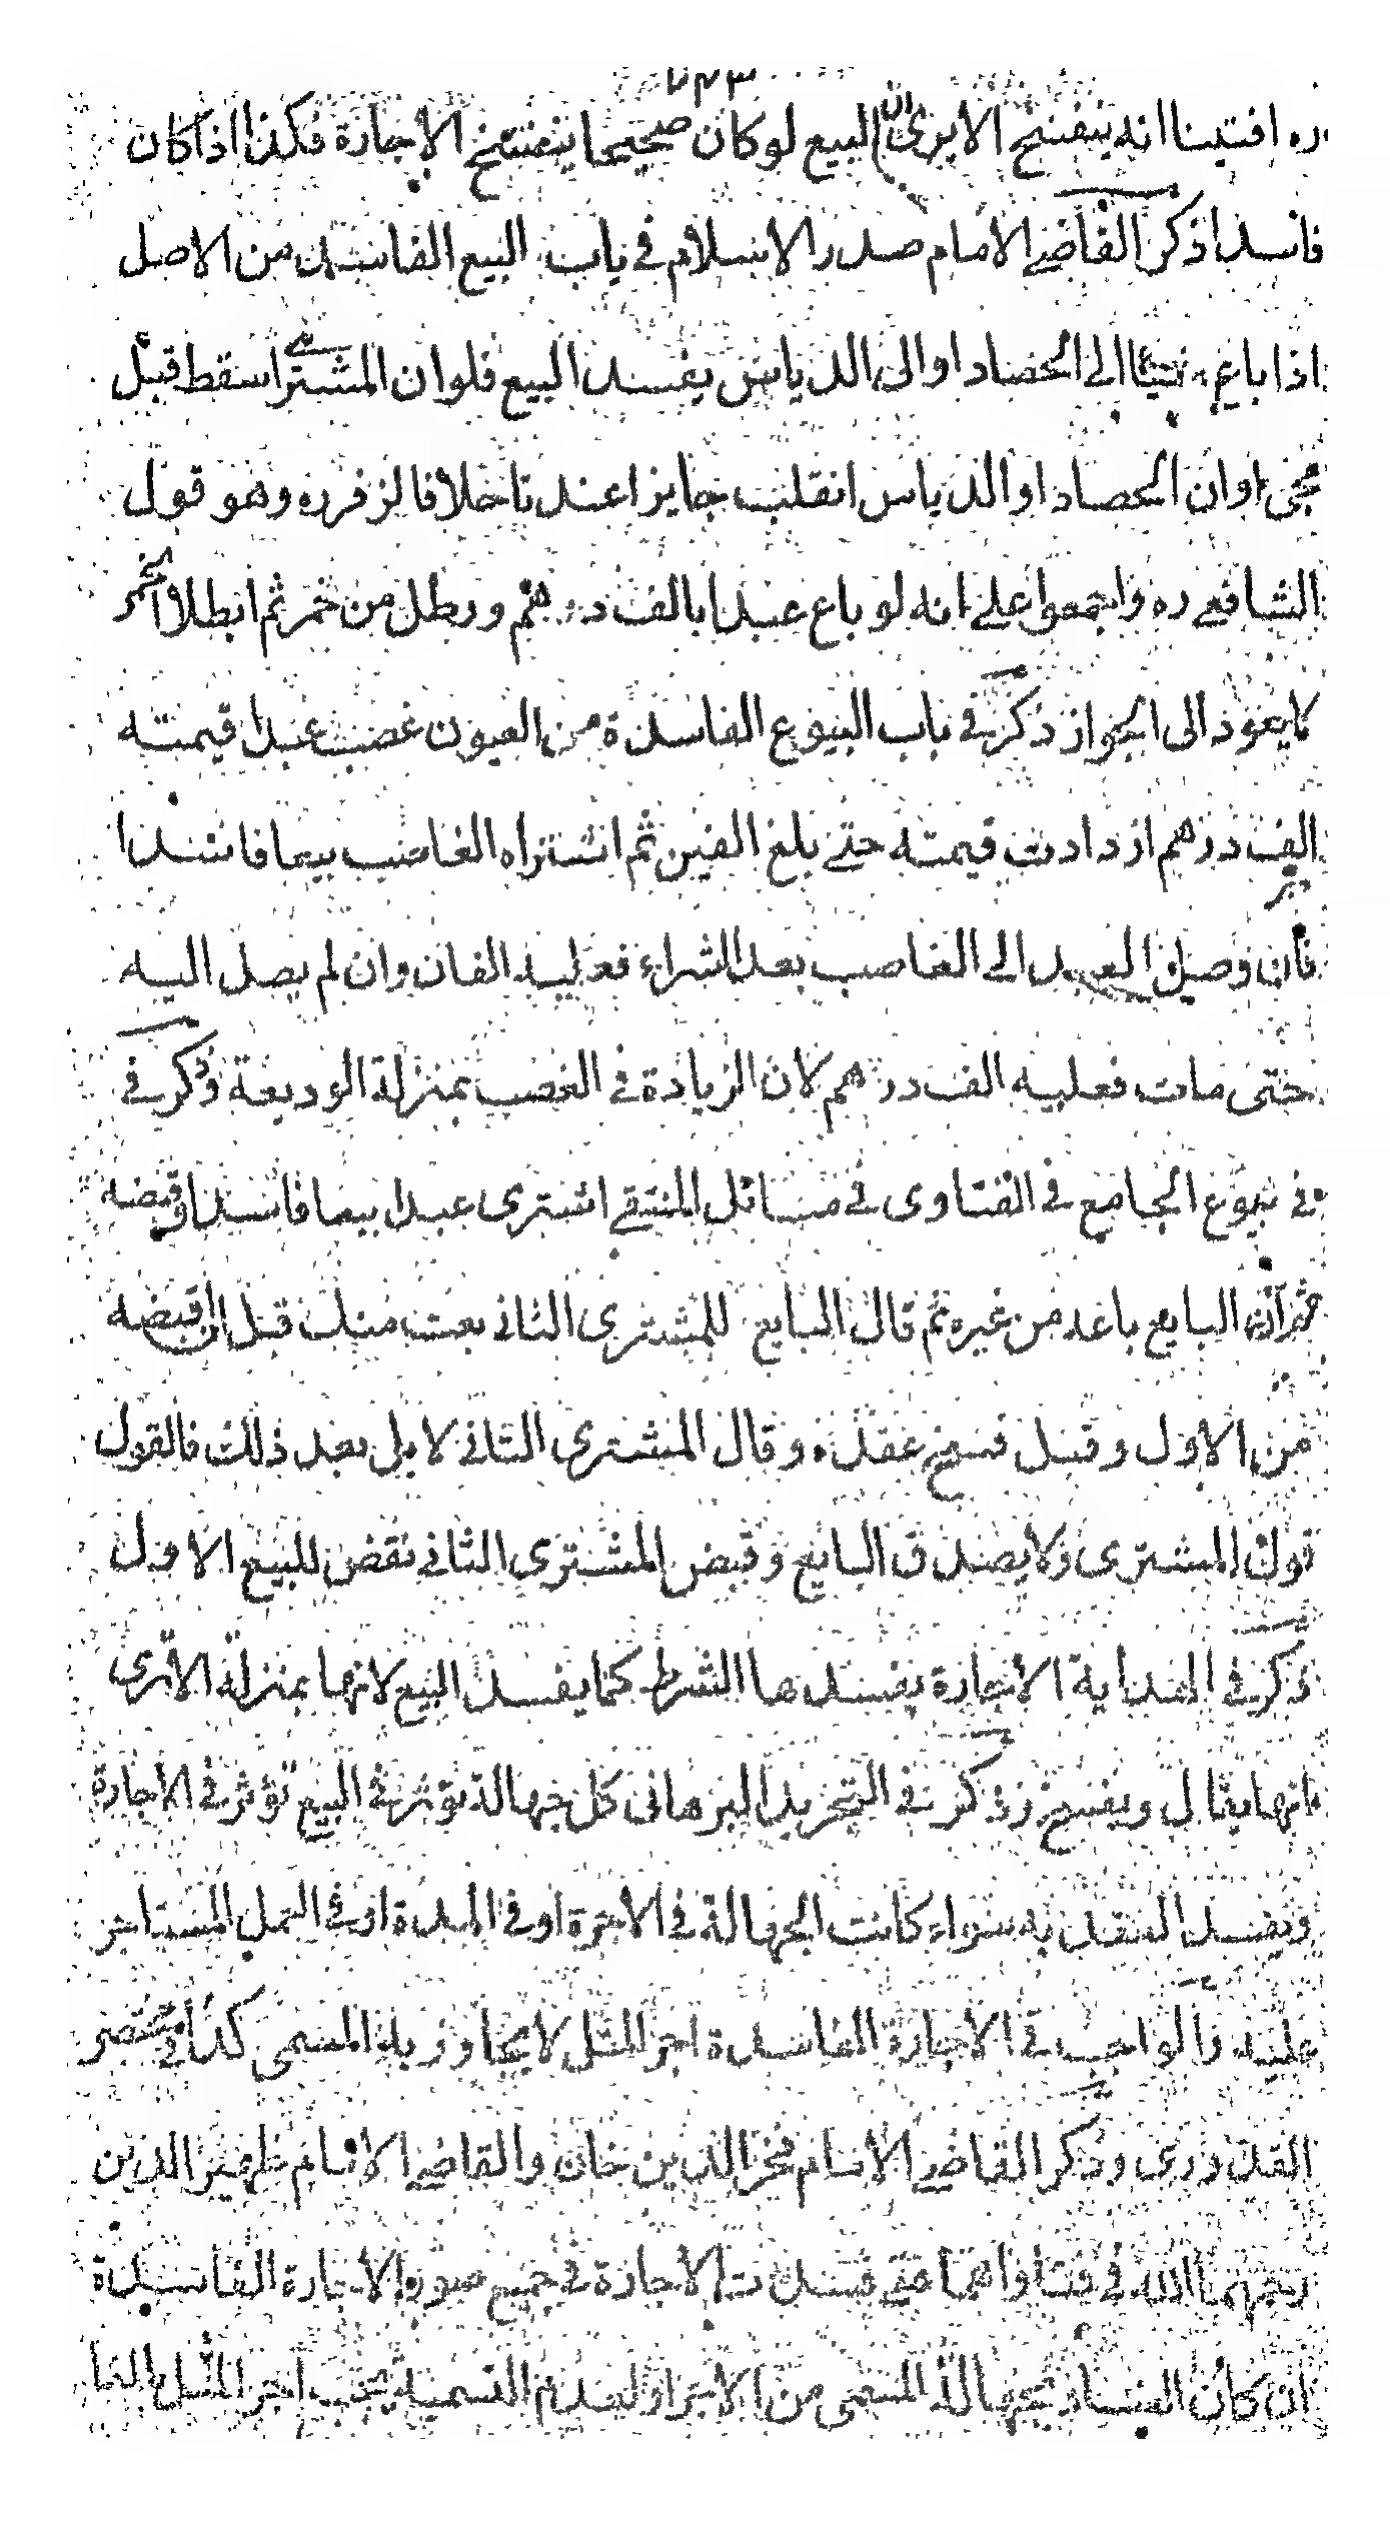 ٢٤٣
ره افتينا انه ينفسخ الا يرى ان البيع لو كان صحيحا ينفسخ الاجارة فكذا اذا كان
فاسدا ذكر القاضي الامام صدر الاسلام في باب البيع الفاسد من الاصل
اذا باع شيئا الى الحصاد او الى الدياس يفسد البيع فلو ان المشتري اسقط قبل
مجئ اوان الحصاد او الدياس انقلب جايزا عندنا خلافا لزفر ره وهو قول
الشافعي ره واجمعوا على انه لو باع عبدا بالف درهم ورطل من خمر ثم ابطلا الخمر
لا يعود الى الجواز ذكر في باب البيوع الفاسدة من العيون غصب عبدا قيمته
الف درهم ازدادت قيمته حتى بلغ الفين ثم اشتراه الغاصب بيعا فاسدا
فان وصل العبد الى الغاصب بعد الشراء فعليه الفان وان لم يصل اليه
حتى مات فعليه الف درهم لان الزيادة في الغصب بمنزلة الوديعة وذكر في
في بيوع الجامع في الفتاوى في مسائل المنتقى اشترى عبدا بيعا فاسدا وقبضه
ثم ان البايع باعه من غيره ثم قال البايع للمشترى الثاني بعت منك قبل ان قبضه
من الاول وقبل فسخ عقده وقال المشترى الثاني لا بل بعد ذلك فالقول
قول المشترى ولا يصدق البايع وقبض المشترى الثاني نقض للبيع الاول
ذكر في الهداية الاجارة يفسدها الشرط كما يفسد البيع لانها بمنزلة الا ترى
انها يقال ويفسخ وذكر في التجريد البرهاني كل جهالة تؤثر في البيع تؤثر في الاجارة
ويفسد العقد به سواء كانت الجهالة في الاجرة او في المدة او في العمل المستاجر
عليه والواجب في الاجارة الفاسدة اجر المثل لا يجاوز به المسمى كذا في مختصر
القدورى وذكر القاضي الامام فخر الدين خان والقاضي الامام ظهير الدين
رحمهما الله في فتاواهما متى فسدت الاجارة في جميع صور الاجارة الفاسدة
ان كان الفساد بجهالة المسمى من الاجر او لعدم التسمية يجب اجر المثل بالغا